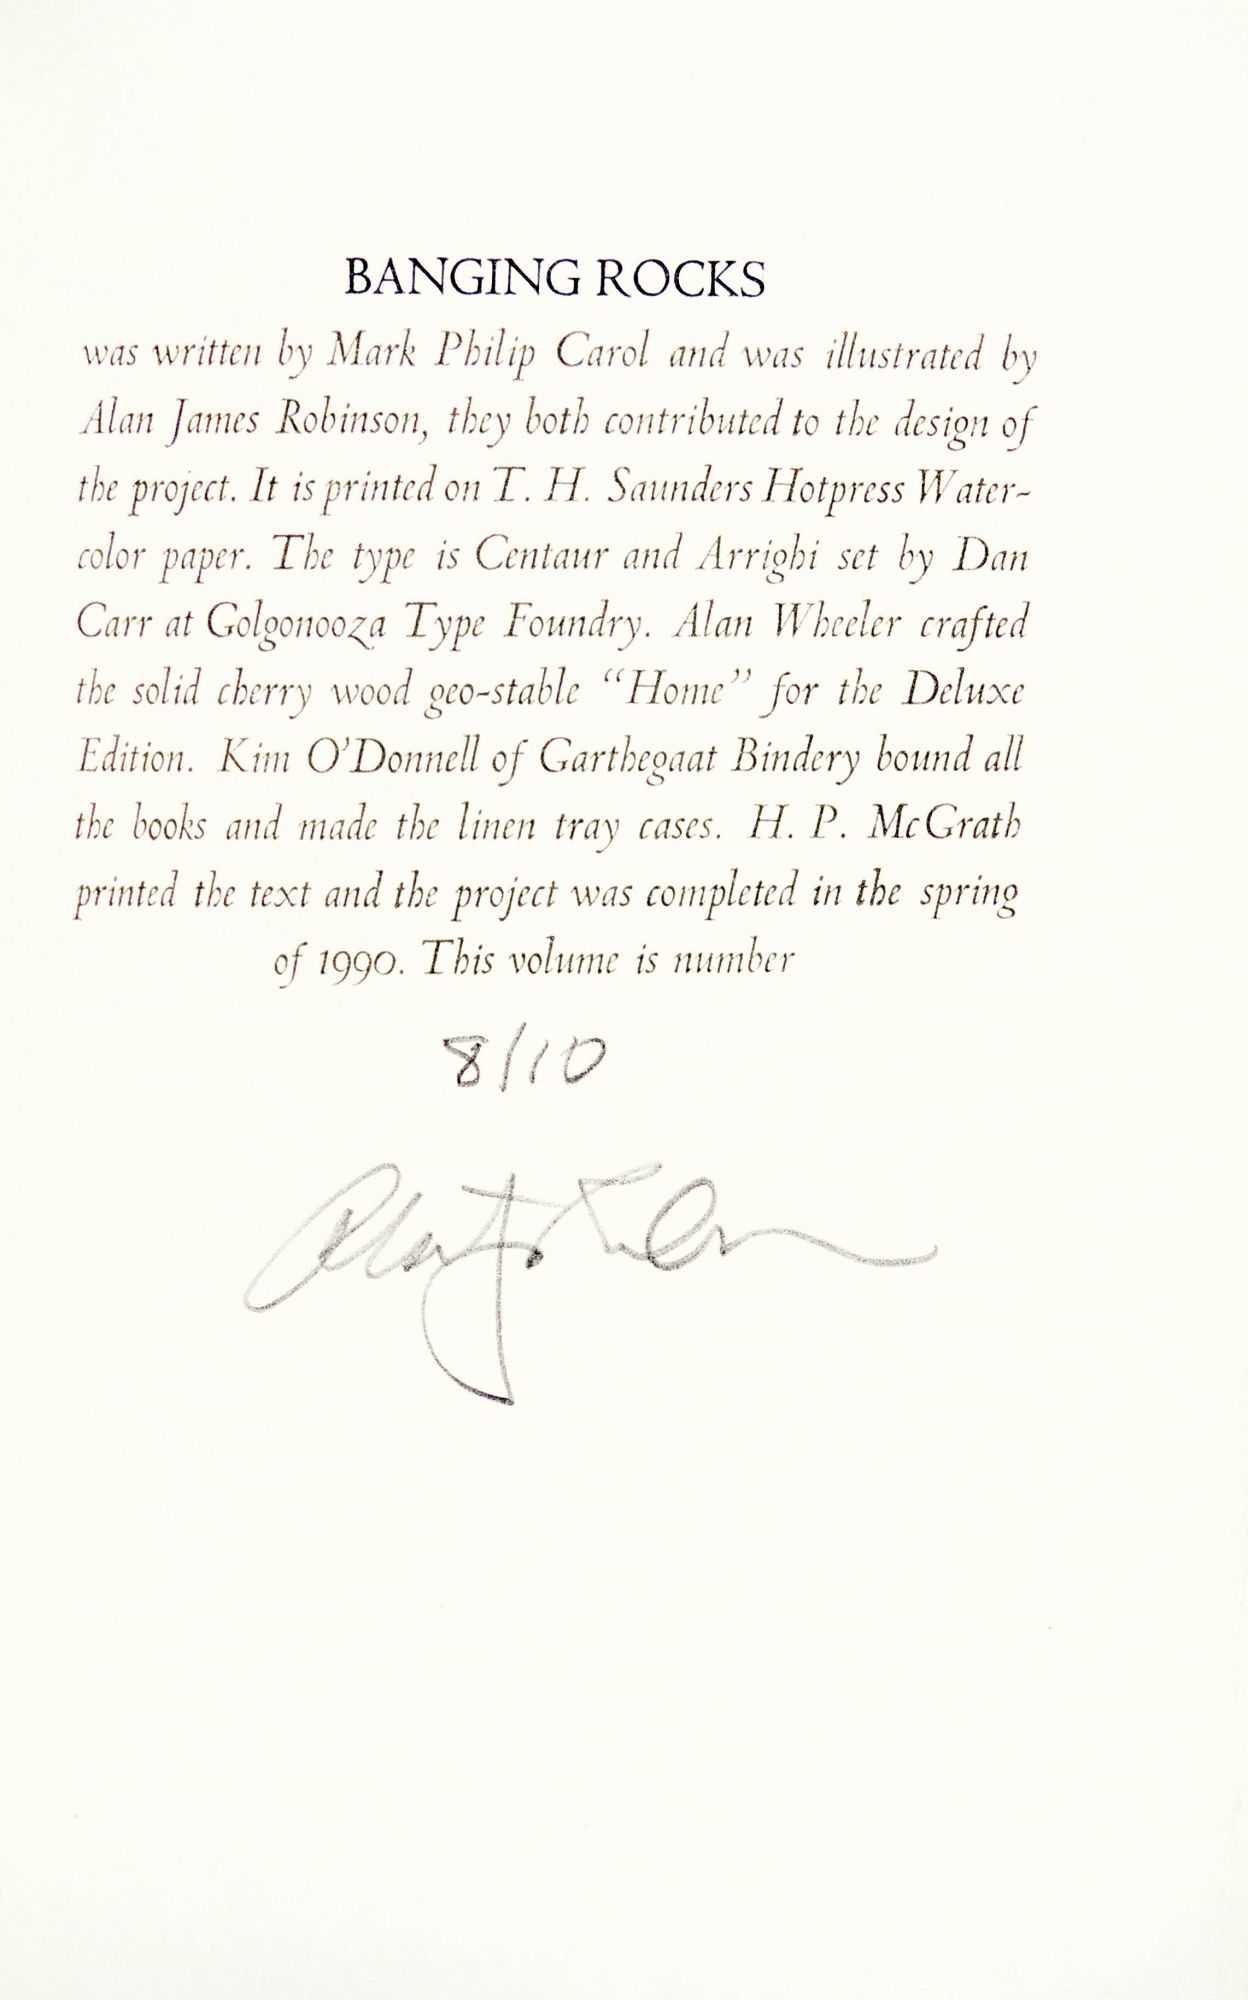 BANGING ROCKS
was written by Mark Philip Carol and was illustrated by
Alan James Robinson, they both contributed to the design of
the project. It is printed on T. H. Saunders Hotpress Water-
color paper. The type is Centaur and Arrighi set by Dan
Carr at Golgonooza Type Foundry. Alan Wheeler crafted
the solid cherry wood geo-stable “Home” for the Deluxe
Edition. Kim O’Donnell of Garthegaat Bindery bound all
the books and made the linen tray cases. H. P. McGrath
printed the text and the project was completed in the spring
of 1990. This volume is number
8/10